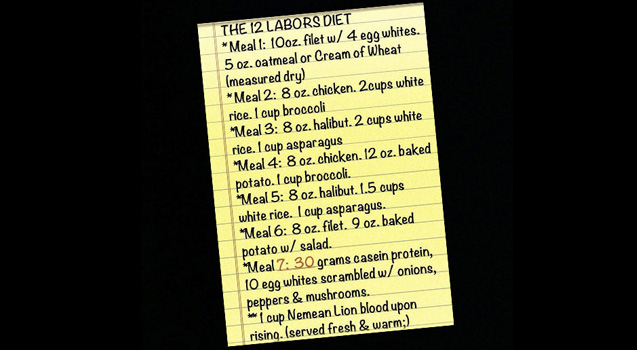 THE 12 LABORS DIET
*Meal 1: 10oz. filet w/ 4 egg whites.
5 oz. oatmeal or Cream of Wheat
(measured dry)
*Meal 2: 8 oz. chicken. 2cups white
rice. 1 cup broccoli
*Meal 3: 8 oz. halibut. 2 cups white
rice. 1 cup asparagus
*Meal 4: 8 oz. chicken. 12 oz. baked
potato. 1 cup broccoli.
*Meal 5: 8 oz. halibut. 1.5 cups
white rice. 1 cup asparagus.
*Meal 6: 8 oz. filet. 9 oz. baked
potato w/ salad.
*Meal 7: 30 grams casein protein,
10 egg whites scrambled w/ onions,
peppers & mushrooms.
** 1 cup Nemean Lion blood upon
rising. (served fresh & warm;)